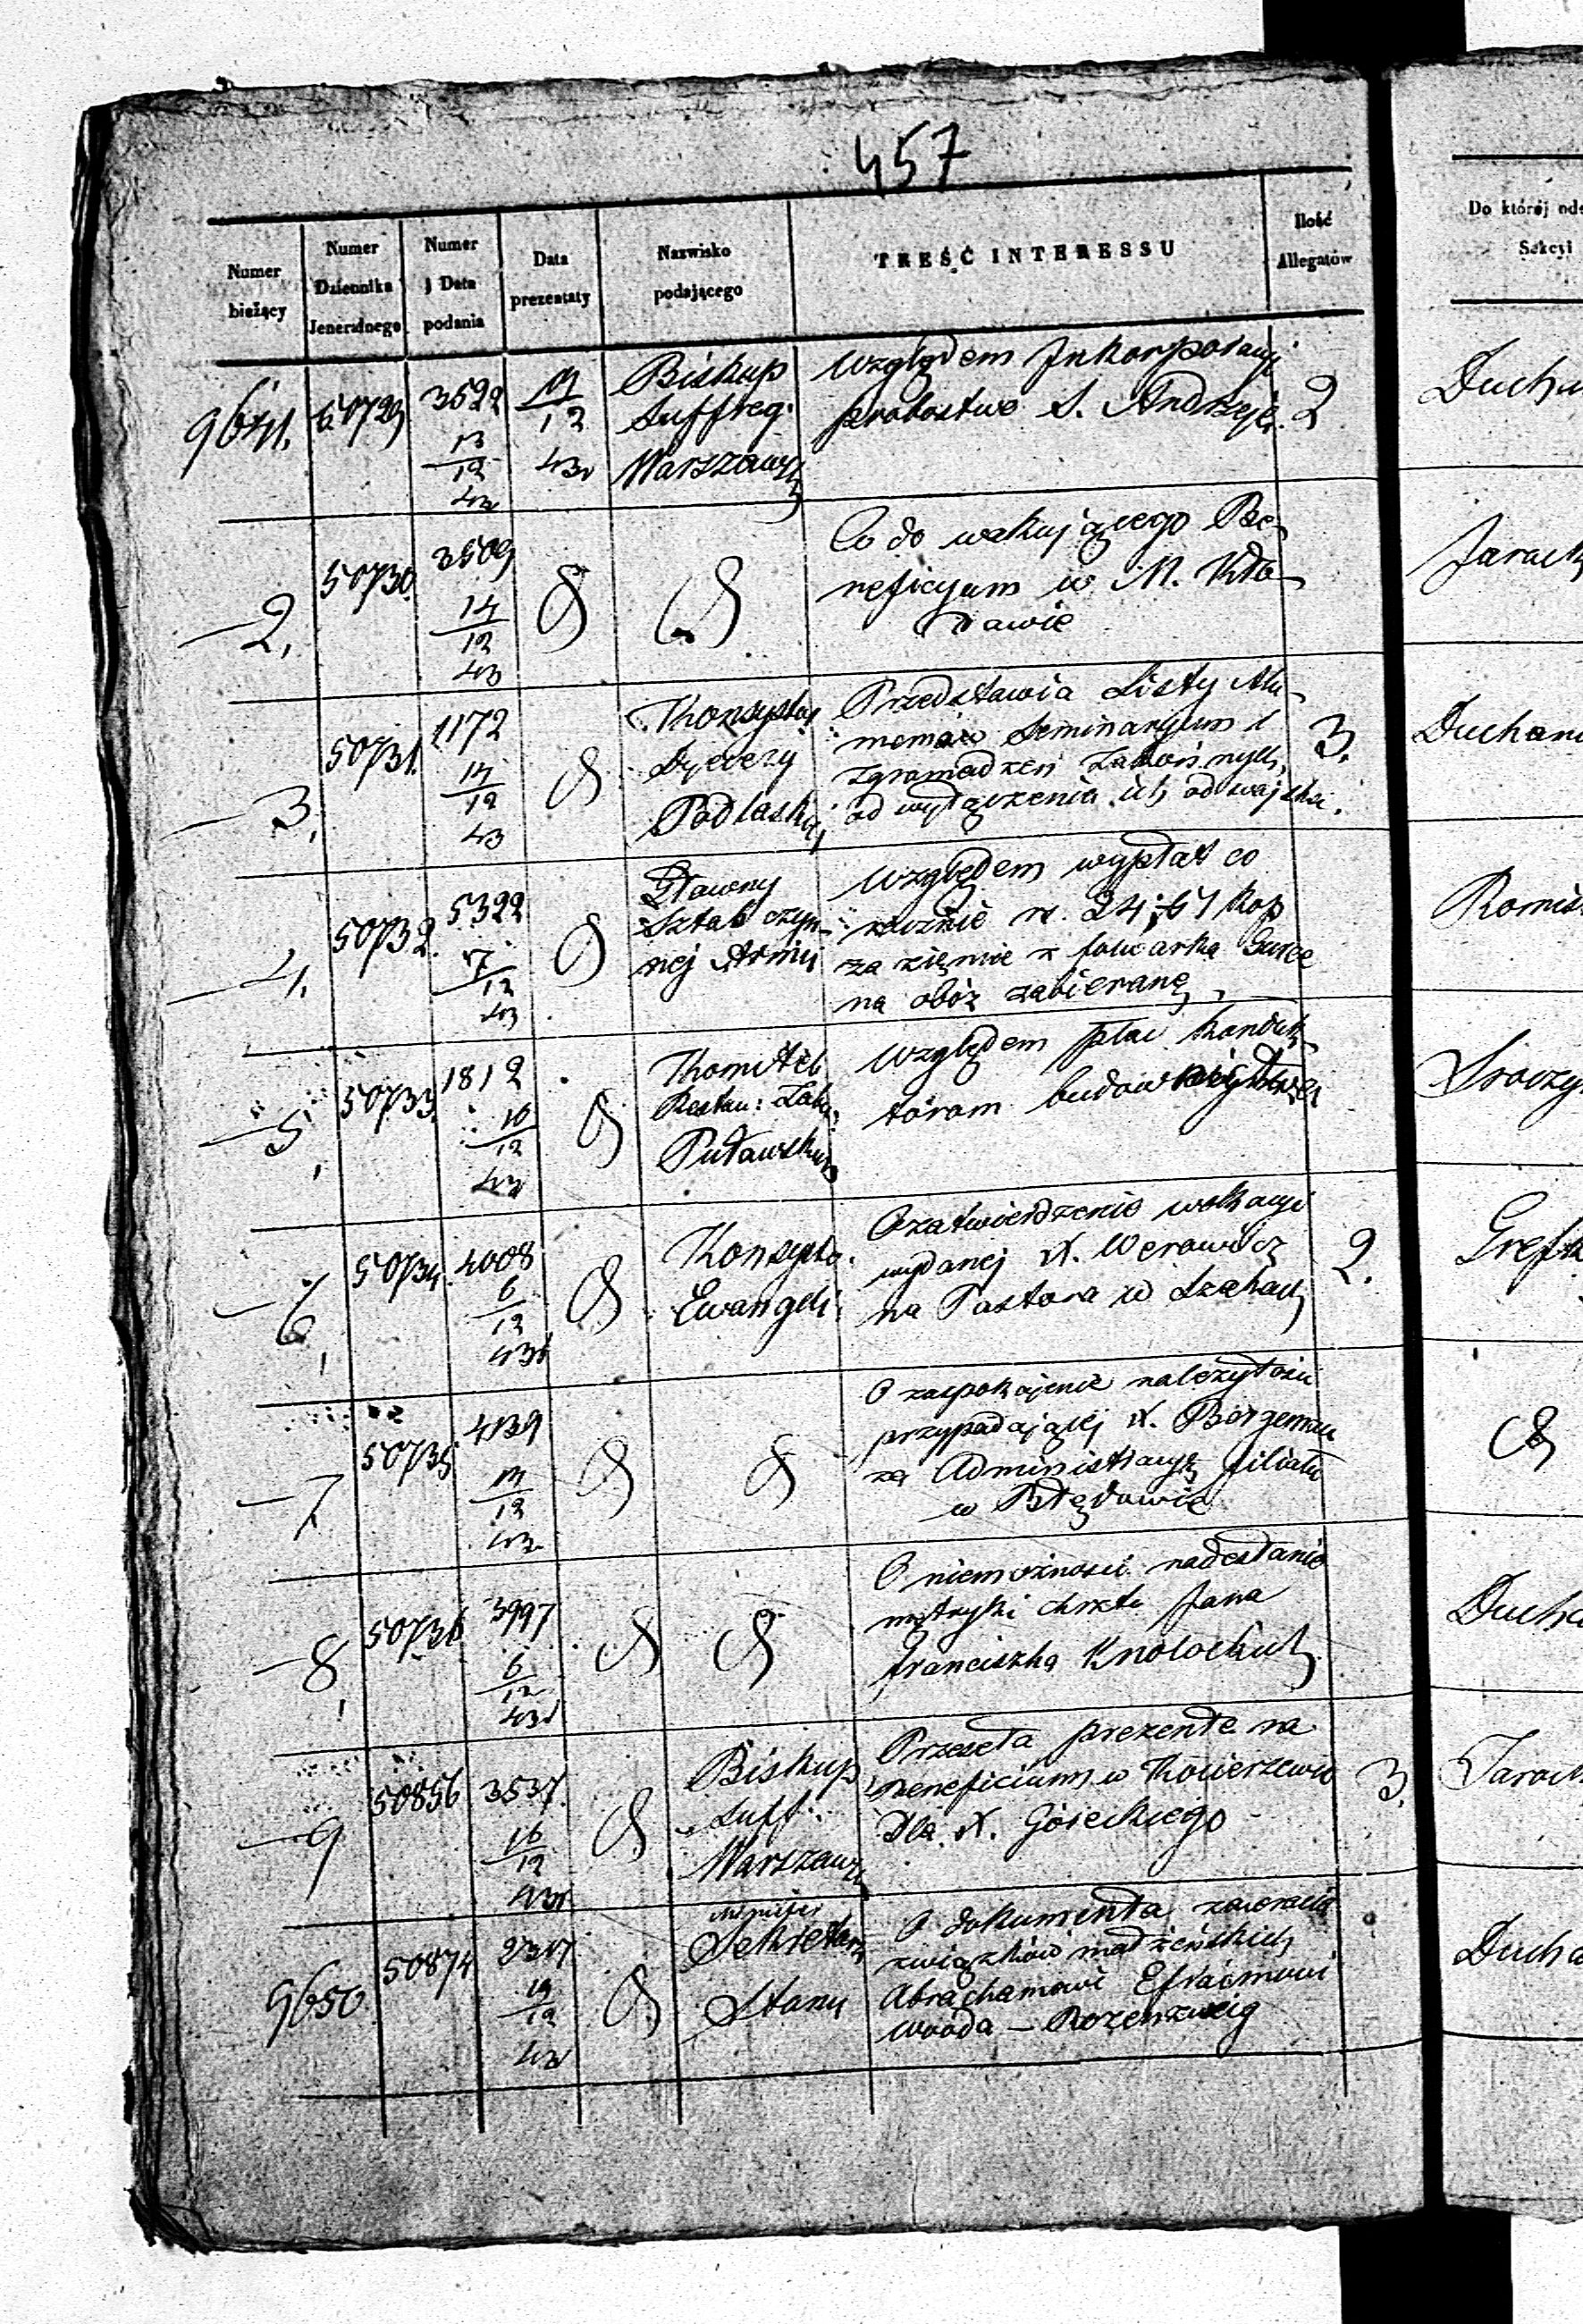 457
Numer bieżący
Numer Dziennika Jeneralnego
Numer i Data podania
Data prezentaty
Nazwisko podającego
TREŚĆ INTERESSU
Ilość Allegatów
Do której
Sekcyi
9641. 50729 3522 12 43 19/12 43
Biskup
Suffrag.
Warszaws
względem Inkorporacyi
probostwa S. Andrzeja. 2
2. 50730. 3509 14/12 43
Co do wakującego Be
neficyum w M. Kło
dawie
3. 50731. 1172 14/12 43
Konsystor
Dyecezyi
Podlaskiej
Przedstawia Listy Alu
mnów Seminaryum i
Zgromadzeń Zakonnych,
od wyłączenia ich od wojska. 3.
4. 50732. 5322 17/12 43
Główny
Sztab czyn
nej Armii
względem wypłat co
rocznie rs. 24 : 67 kop
za ziemie z folwarku Gurce
na obóz zabieraną
5. 50733. 1812 16/12 43
Komitet
Restau: Zabu
Puławskich
względem płac konduk
torom budowniczych
6. 50734. 4008 6/12 43
Konsysto.
Ewangeli.
O zatwierdzenie wokacyi
wydanej X.
na Pastora w 2.
7. 50735 4139 12 43
O zaspokojenie należytości
przypadającej X. Bergeman
za Administracyę filiału
w Błędowie
8. 50736 3997 6/12 43
O niemożności nadesłania
metryki chrztu Jana
Franciszka
9 50856 3537. 16/12 43
Biskup
Suff.
Warszaws
Przeseła prezentę na
beneficium w Kowierzewie
dla X. Góreckiego 3.
9650 50874 2317 19/12 43
Minister
Sekretarz
Stanu
O dokumenta zawarcia
związków małżeńskich
Abrachamowi Efraimowi
Rozenzweig